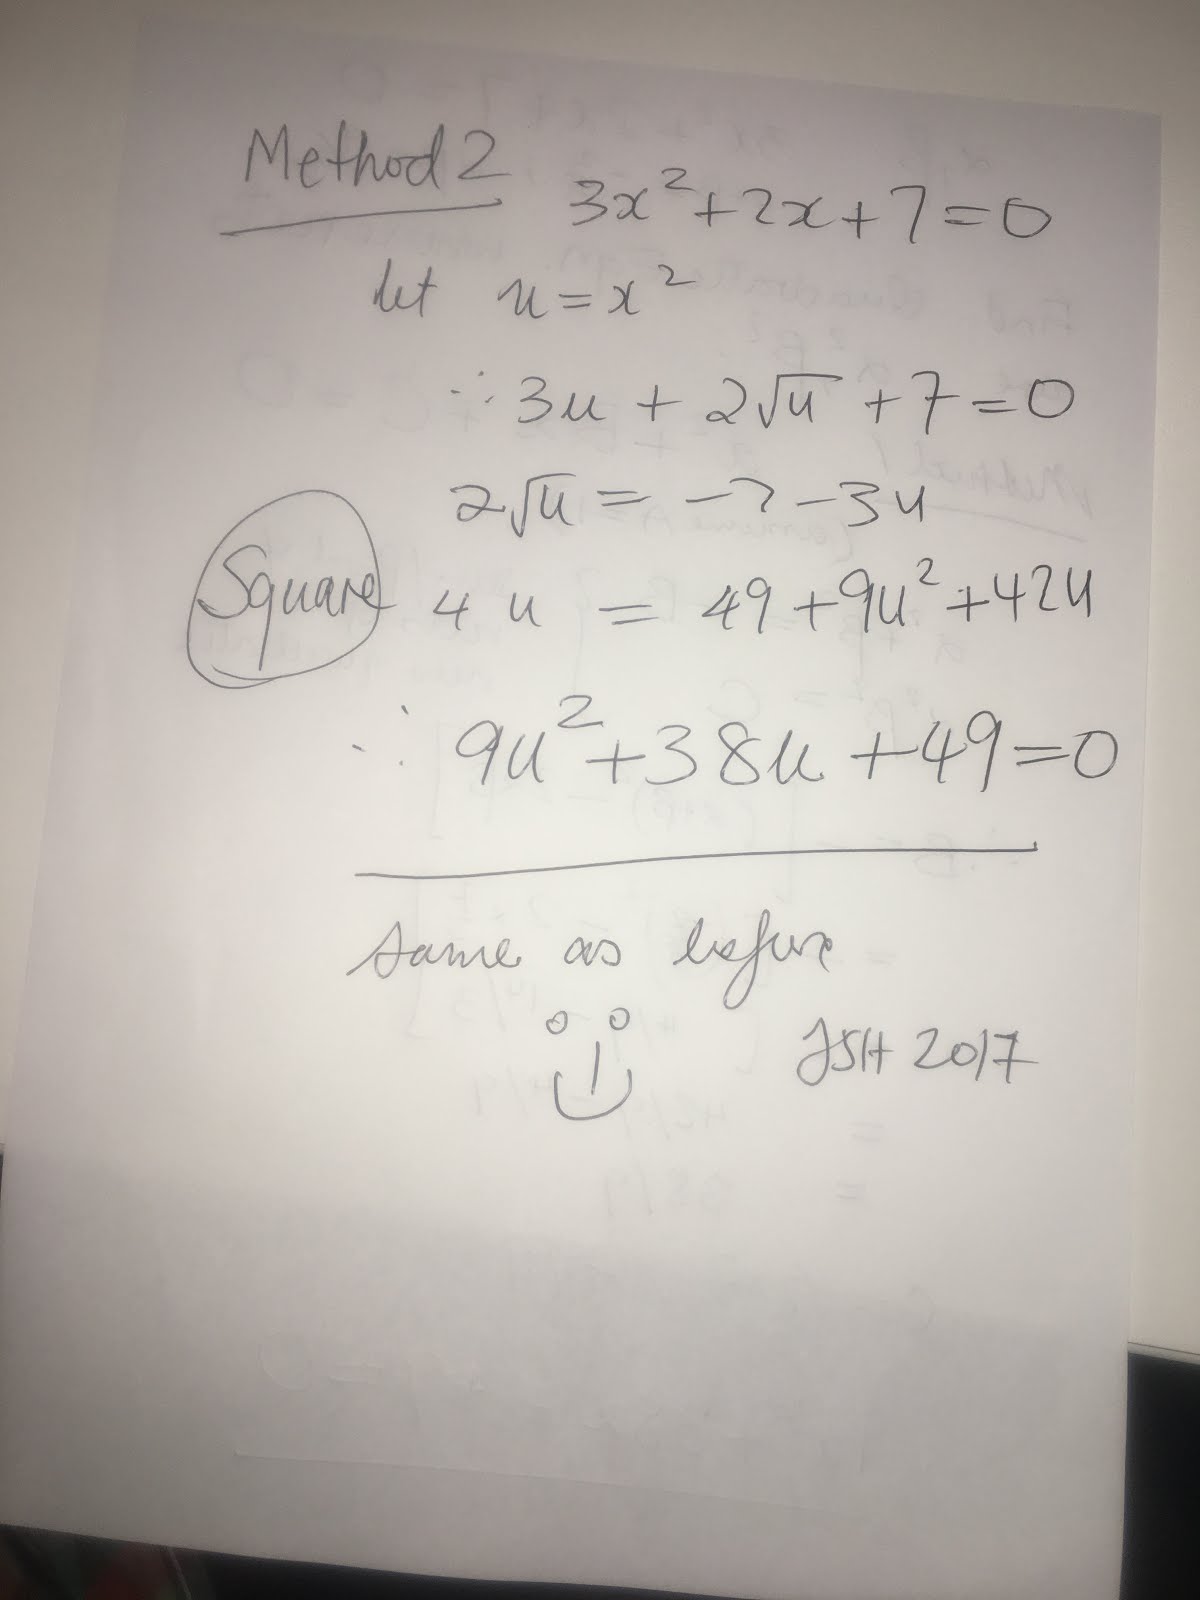 Method 2
3x²+2x+7=0
let u=x²
∴ 3u + 2√u + 7 = 0
2√u = -7-3u
Square 4u = 49+9u²+42u
∴ 9u²+38u+49=0
same as before
JSH 2017